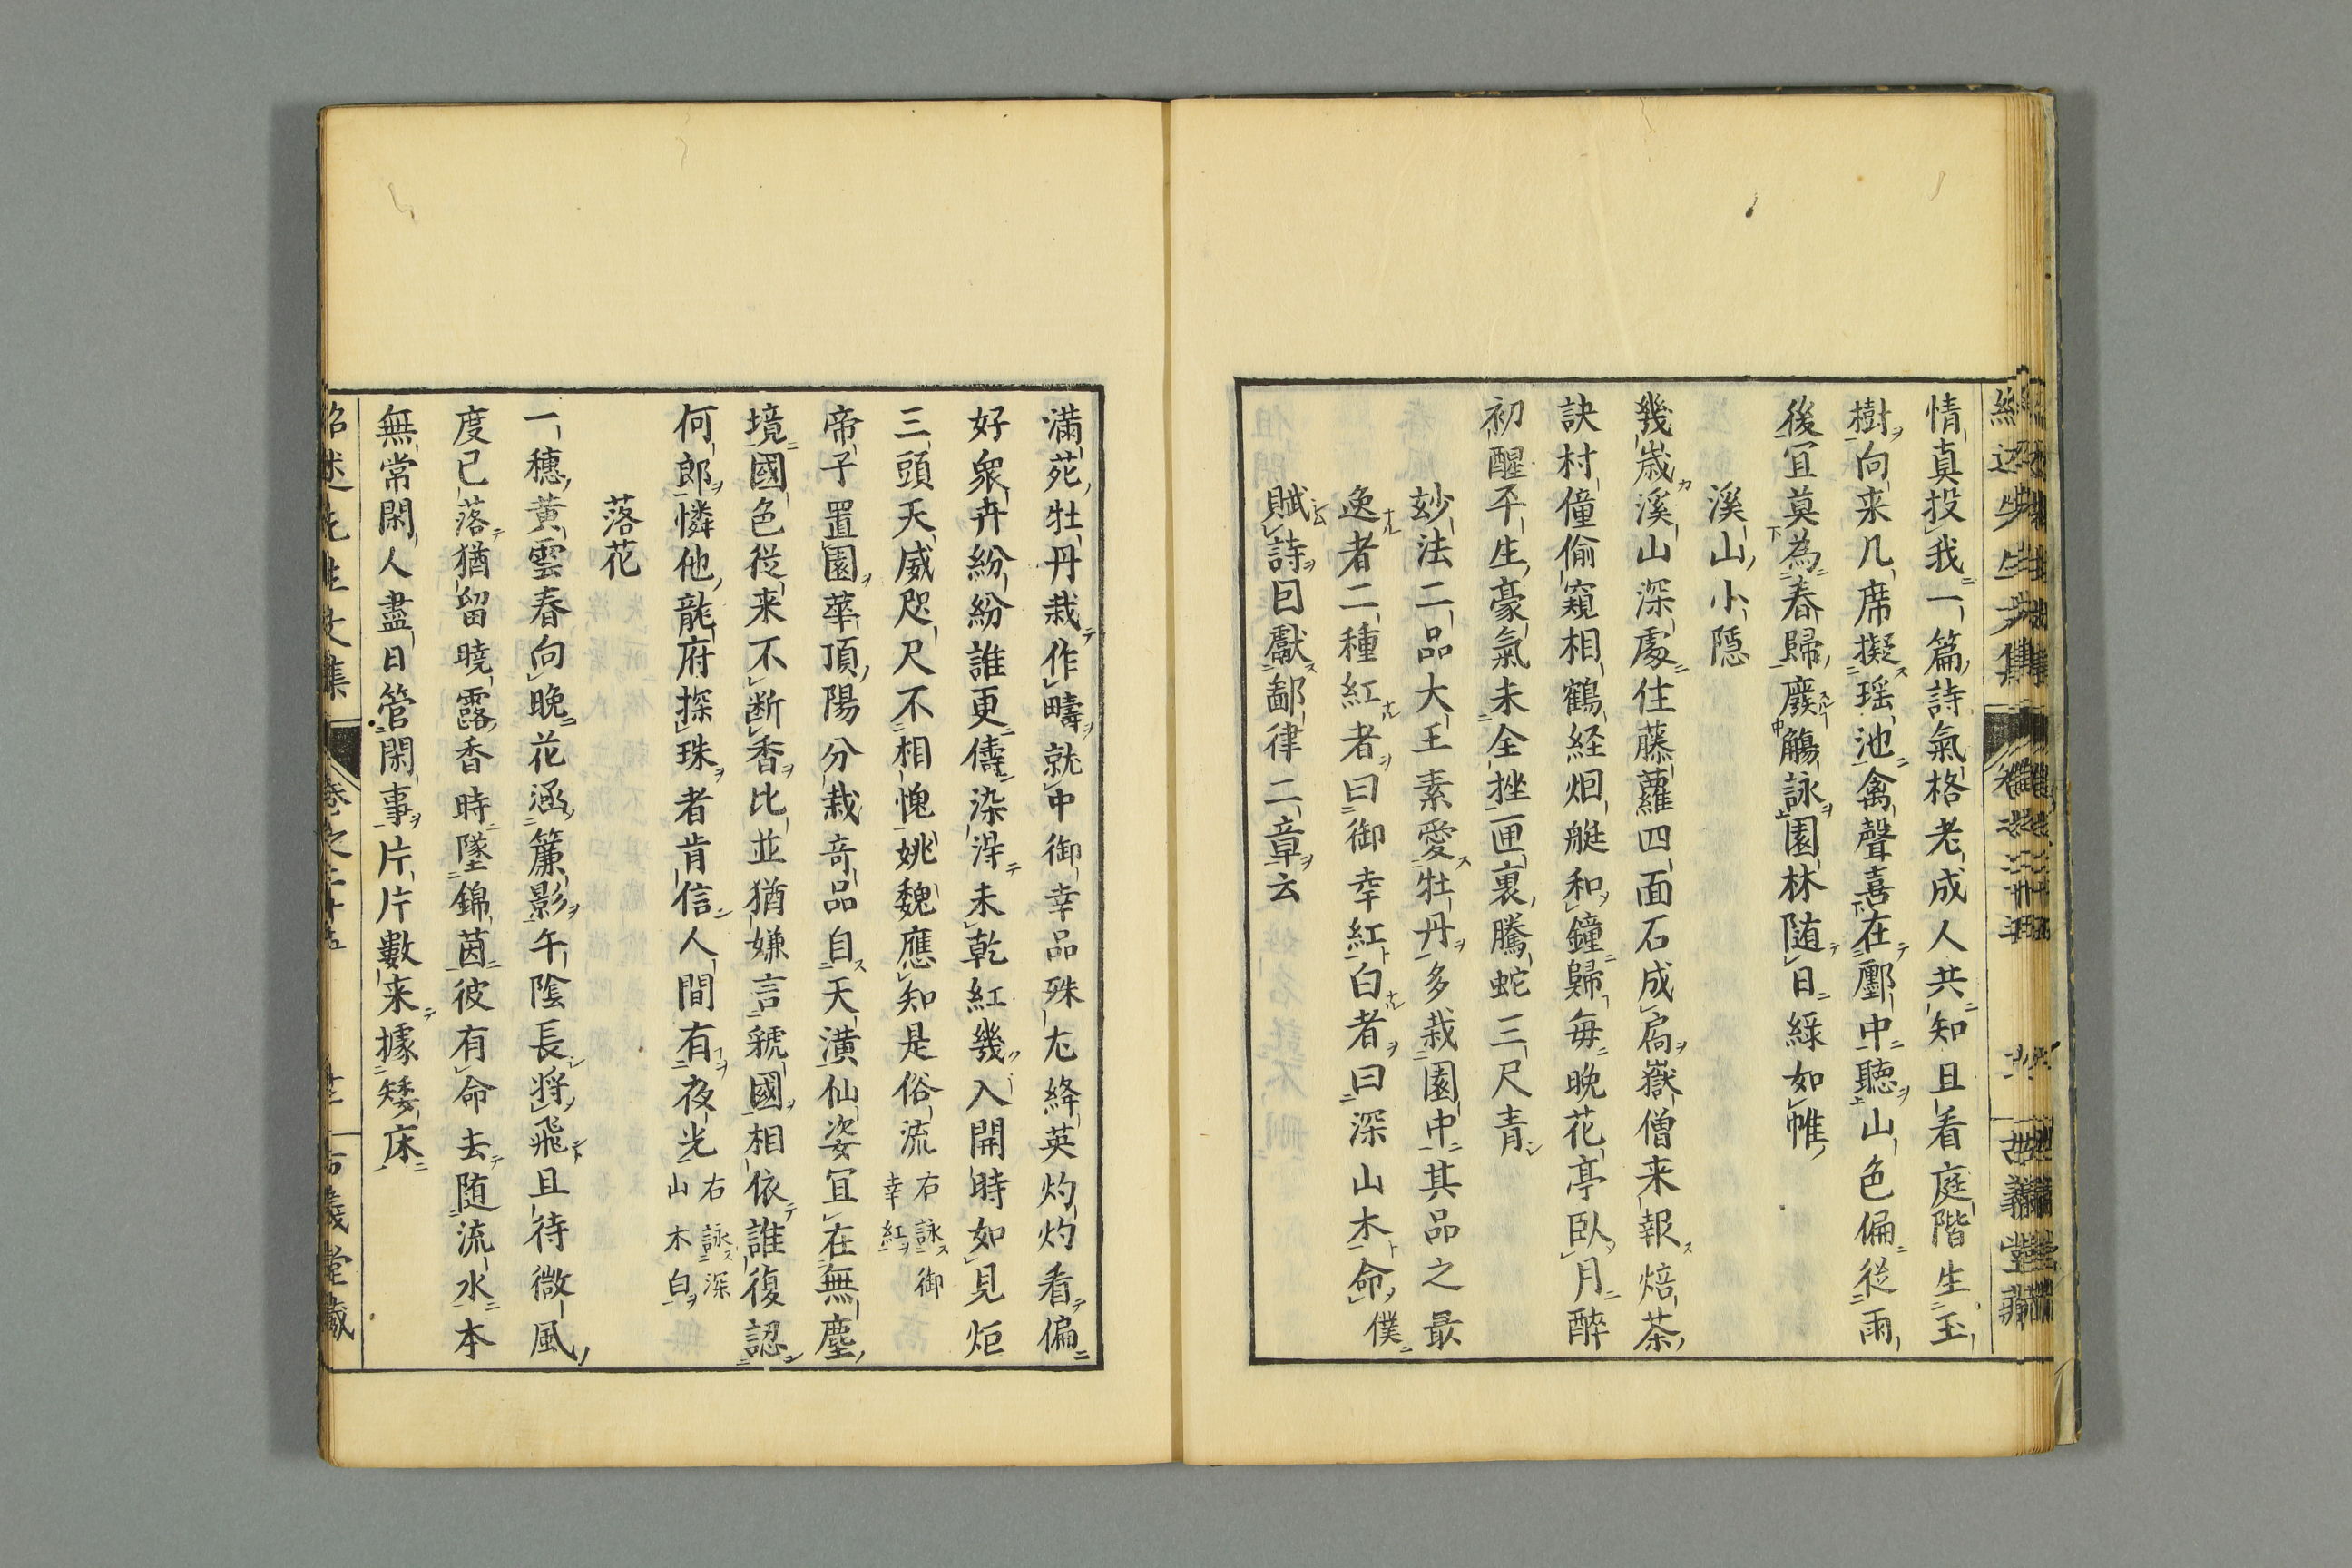 情真投我一篇詩氣格老成人共知且看庭階生玉
樹向来几席擬瑶池禽聲喜在酆中聽山色偏従雨
後冝莫為春歸廢觴詠園林随日緑如帷
溪山小隠
幾歳溪山深處住藤蘿四面石成扃嶽僧来報焙茶
訣村僮偷窺相鶴経烟艇和鐘歸毎晩花亭臥月醉
初醒平生豪氣未全挫匣裏騰蛇三尺青
妙法二品大王素愛牡丹多栽園中其品之最
逸者二種紅者曰御幸紅白者曰深山木命僕
賦詩囙獻鄙律二章云
滿苑牡丹栽作疇就中御幸品殊尤絳英灼灼看偏
好衆卉紛紛誰更儔染淂未乾紅幾入開時如見炬
三頭天威咫尺不相愧姚魏應知是俗流
右詠御
幸紅
帝子置園華頂陽分栽奇品自天潢仙姿冝在無塵
境國色従来不断香比並猶嫌言虢國相依誰復認
何郎憐他龍府探珠者肯信人間有夜光
右詠深
山木白
落花
一穗黄雲春向晩花涵簾影午陰長将飛且待微風
度已落猶留曉露香時墜錦茵彼有命去随流水本
無常閑人盡日管閑事片片數来據矮床